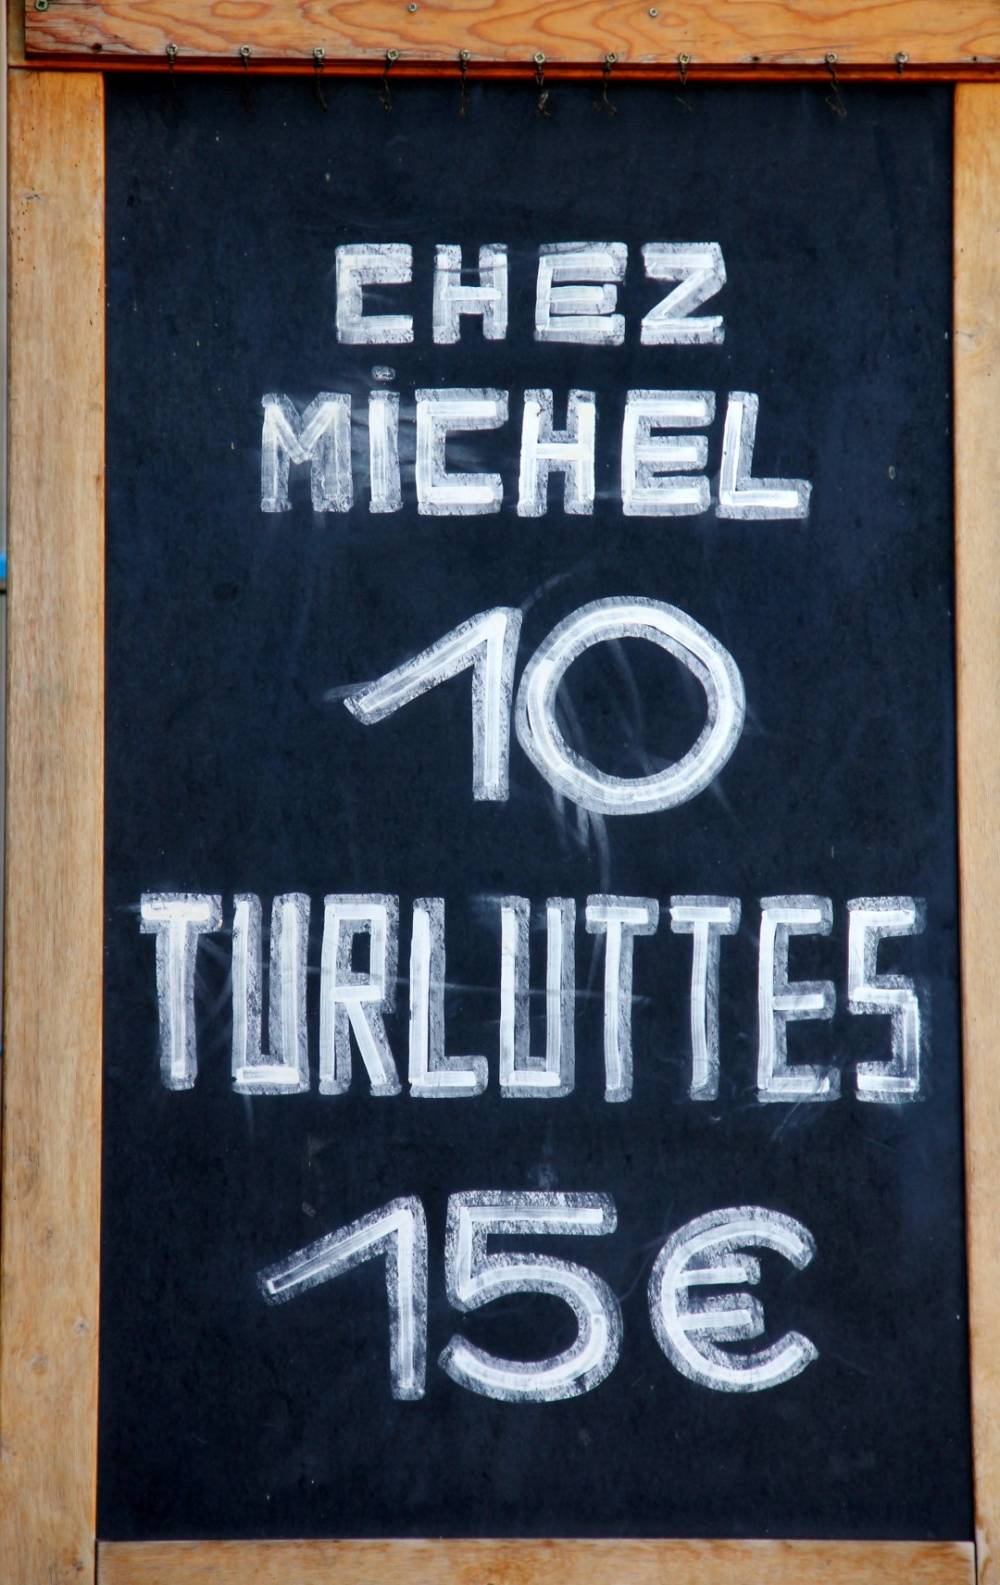 CHEZ
MiCHEL
10
TURLUTTES
15€